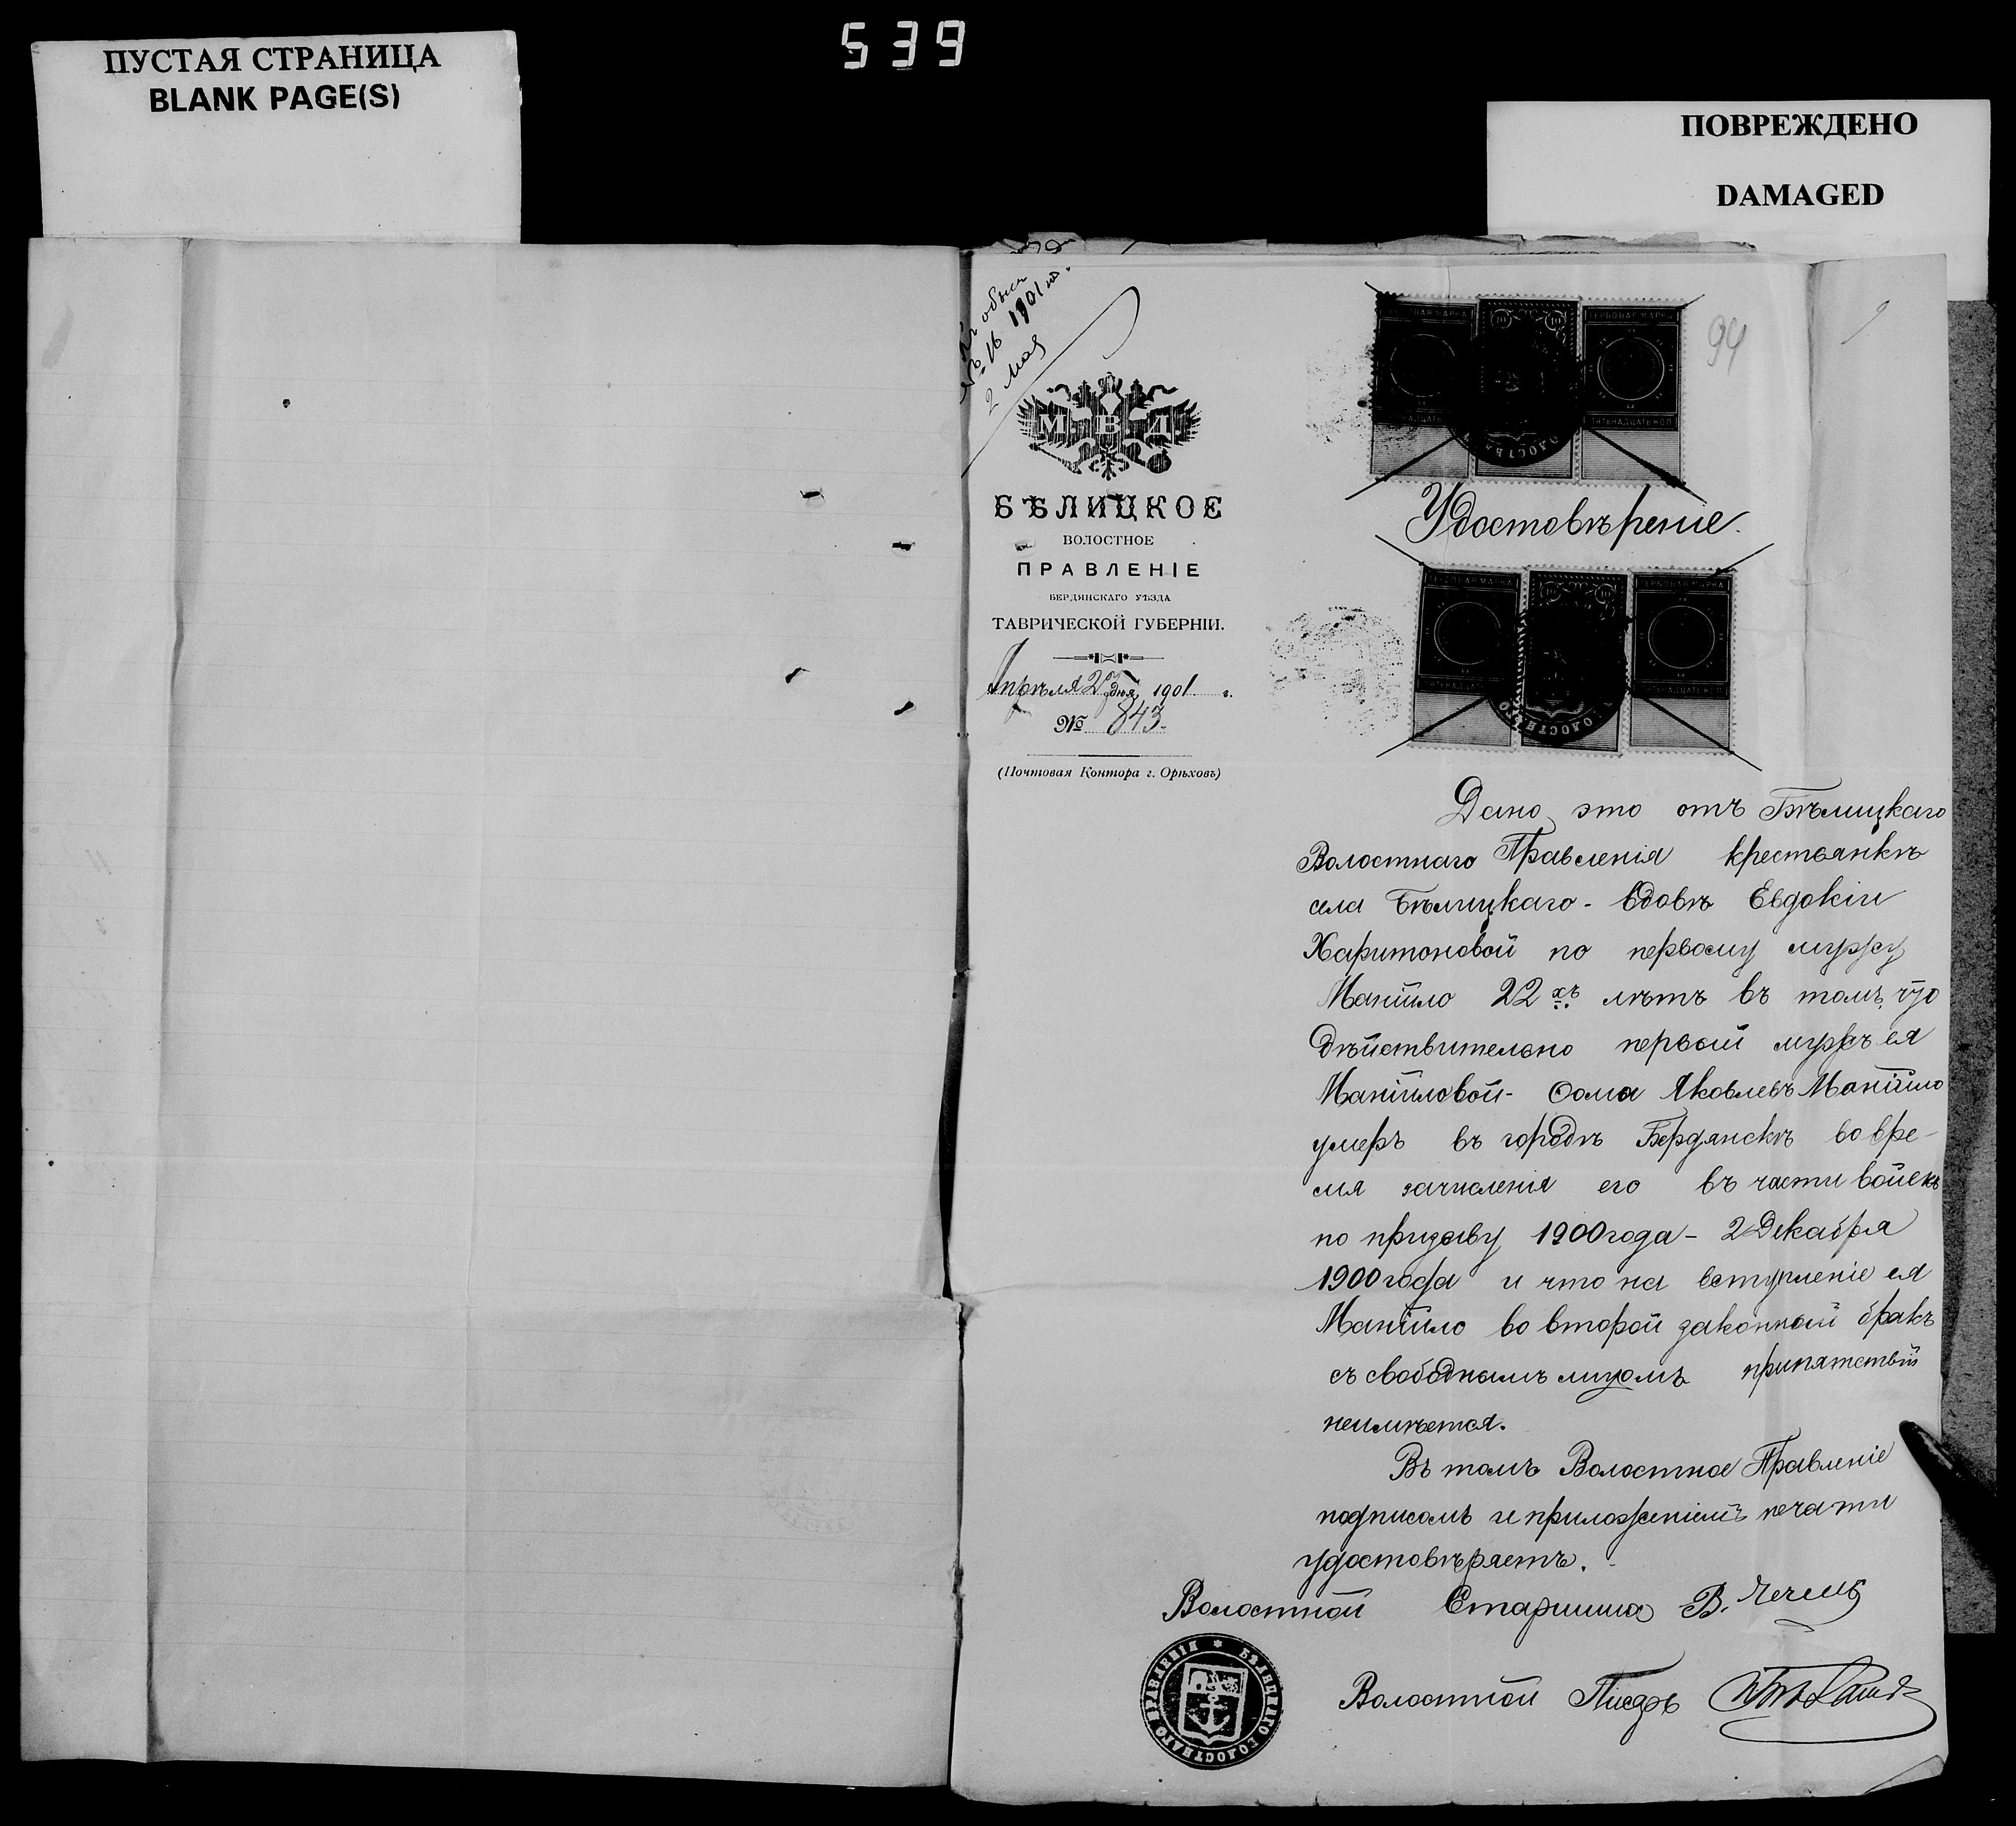 539
ПУСТАЯ СТРАНИЦА
BLANK PAGE(S)
ПОВРЕЖДЕНО
DAMAGED
№ 16 1901 го.
2 мая
94
М В Д
БѢЛИЦКОЕ
ВОЛОСТНОЕ
ПРАВЛЕНІЕ
БЕРДЯНСКАГО УѢЗДА
ТАВРИЧЕСКОЙ ГУБЕРНІИ.
Апрѣля 27 дня 1901 г.
№ 843.
(Почтовая Контора г. Орѣховъ)
ГЕРБОВАЯ МАРКА
ПЯТЬНАДЦАТЬ КОП.
Удостовѣреніе.
ГЕРБОВАЯ МАРКА
ГЕРБОВАЯ МАРКА
ПЯТЬНАДЦАТЬ
ПЯТЬНАДЦАТЬ КОП
Дано это отъ Бѣлицкаго
Волостнаго Правленія крестьянкѣ
села Бѣлицкаго - вдовѣ Евдокіи
Харитоновой по первому мужу
Манйло 22хъ лѣтъ въ томъ, что
дѣйствительно первый мужъ ея
Манйловой - Ѳома Яковлевъ Манійло
умеръ въ городѣ Бердянскѣ во вре-
мя зачисленія его въ части войскъ
по призыву 1900 года - 2 Декабря
1900 года и что на вступленіе ея
Манійло во второй законный бракъ
съ свободнымъ лицомъ припятствій
неимѣется.
Въ томъ Волостное Правленіе
подписомъ и приложеніемъ печати
удостовѣряетъ.
Волостной Старшина В.
Волостной Писарь
БѢЛИЦКАГО ВОЛОСТНАГО ПРАВЛЕНІЯ *